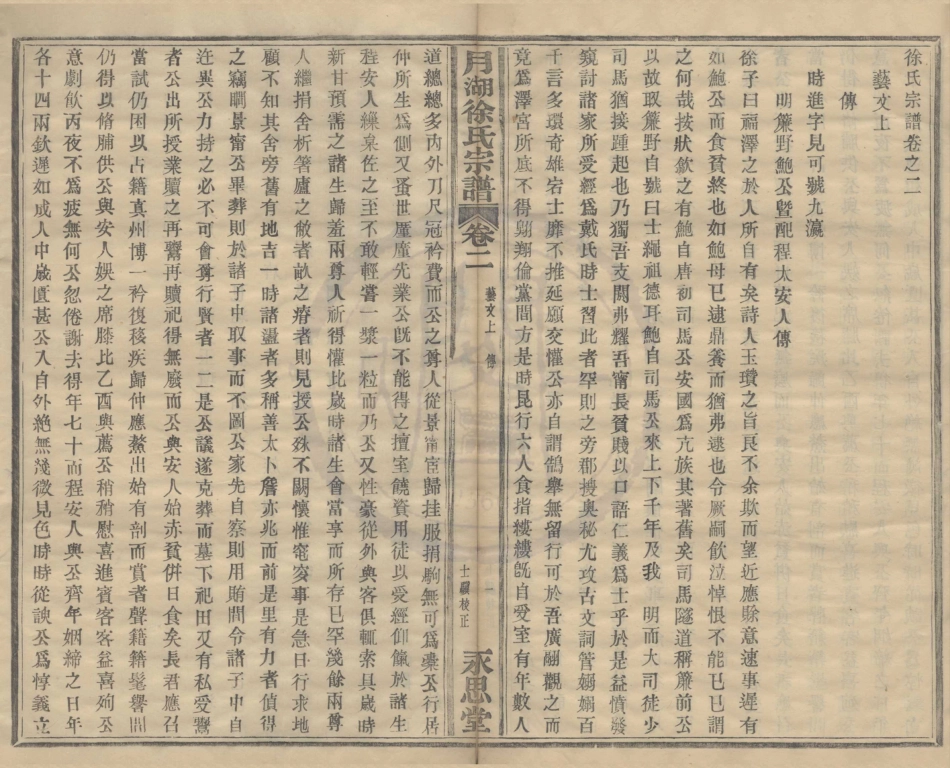 徐氏宗譜卷之二
藝文上
傳
時進字見可號九瀛
明簾野鮑公曁配程太安人傳
徐子曰福澤之於人所自有矣詩人玉瓚之旨良不余欺而望近應賒意速事遲有
如鮑公而食貧終也如鮑母已逮鼎養而猶弗逮也令厥嗣飲泣悼恨不能已已謂
之何哉按狀歙之有鮑自唐初司馬公安國爲亢族其著舊矣司馬隧道稱簾前公
以故取簾野自號曰士繩祖德耳鮑自司馬公來上下千年及我 明而大司徒少
司馬猶接踵起也乃獨吾支閥弗耀吾甯長貧賤以口語仁義爲士乎於是益憤發
窺討諸家所受經爲戴氏時士習此者罕則之旁郡搜奥秘尤攻古文詞管嫋嫋百
千言多瓌奇雄宕士靡不推延願交懽公亦自謂鵠舉無留行可於吾廣翮觀之而
竟爲澤宮所底不得翺翔倫黨間方是時昆行六人食指穅穅旣自受室有年數人
月湖徐氏宗譜 卷二 藝文上 傳 一 士驥校正 永思堂
道總總多內外刀尺冠衿費而公之尊人從景甯宦歸挂服捐駒無可爲橐公行居
仲所生爲側又蚤世厪厪先業公旣不能得之擅室饒資用徒以愛經仰餼於諸生
程安人繰枲佐之至不敢輕嘗一漿一粒而乃公又性豪從外與客俱輒索具歲時
新甘預需之諸生歸羞兩尊人祈得懽比歲時諸生會當享而所存已罕幾餘兩尊
人繼捐舍析箸廬之敝者畝之瘠者則見授公殊不關懷惟窀穸事是急日行求地
顧不知其舍旁舊有地吉一時諸盪者多稱善太卜詹亦兆而前是里有力者偵得
之竊瞯景甯公畢葬則於諸子中取事而不圖公家先自察則用賄間令諸子中自
迕異公力持之必不可會尊行賢者一二是公議遂克葬而墓下祀田又有私受鬻
者公出所授業贖之再鬻再贖祀得無廢而公與安人始赤貧併日食矣長君應召
當試仍困以占籍真州博一衿復移疾歸仲應鰲出始有剖而賞者聲籍籍髦譽間
仍得以脩脯供公與安人娛之席膝比乙酉與薦公稍稍慰喜進賓客客益喜姁公
意劇飲丙夜不爲疲無何公忽倦謝去得年七十而程安人與公齊年姻締之日年
各十四兩欽遲如成人中歲匱甚公入自外絶無淺微見色時時從諛公爲惇義立